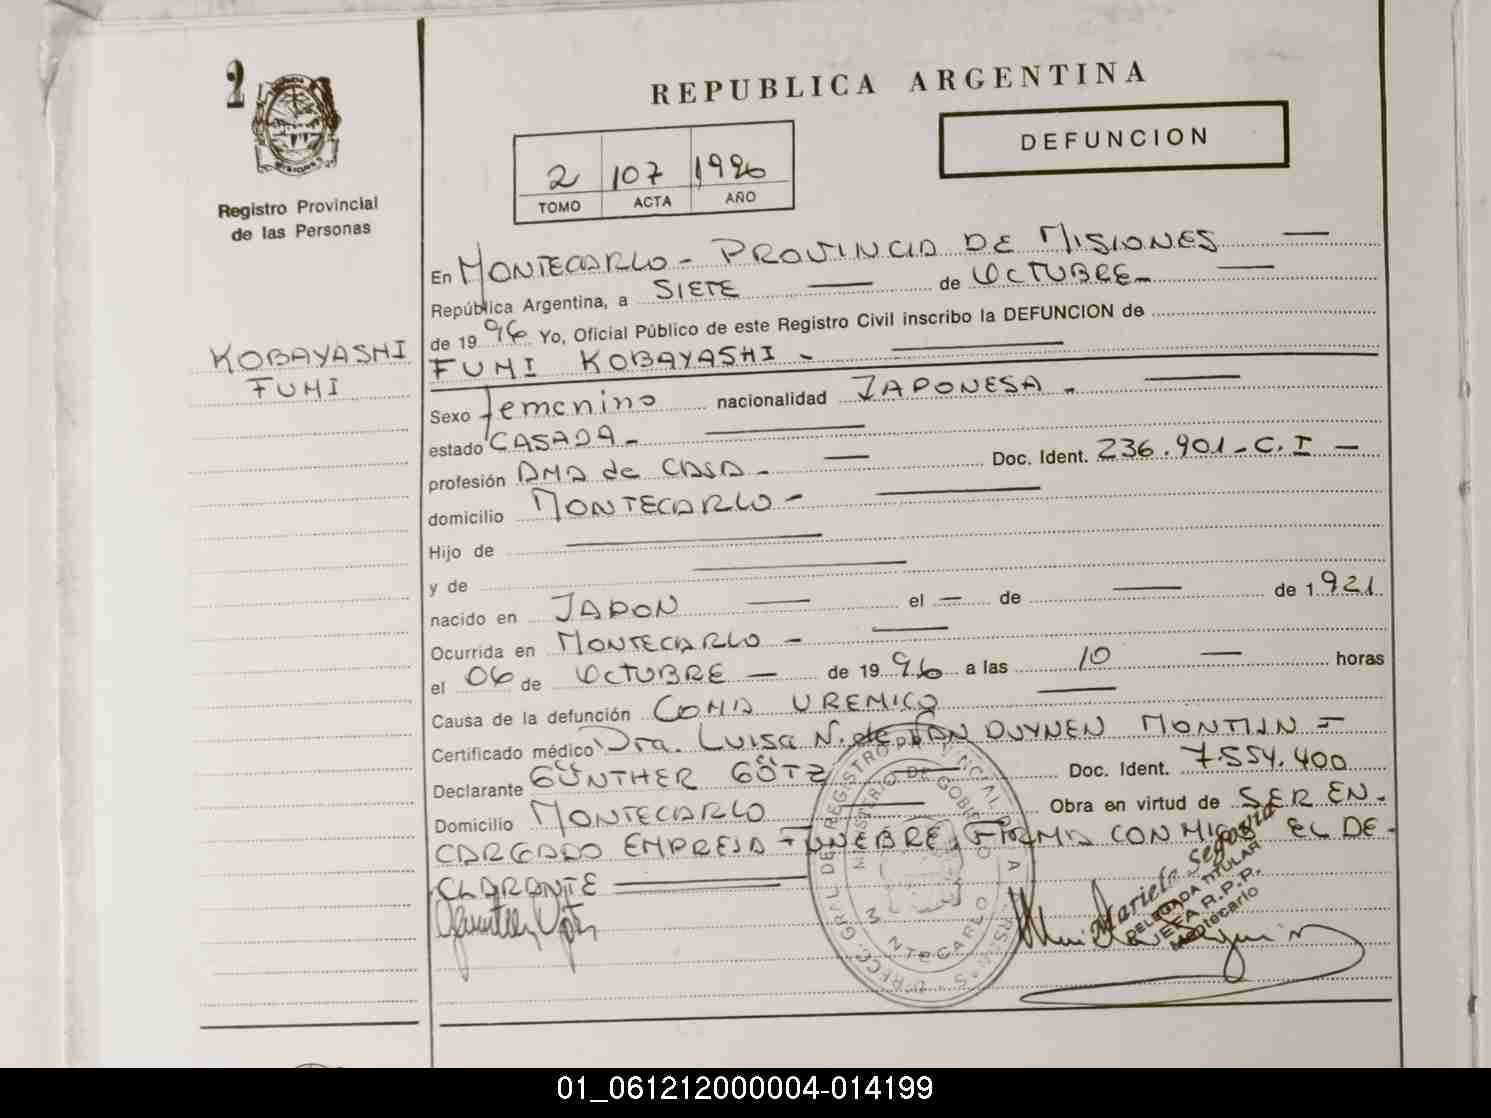 2
REPUBLICA ARGENTINA
DEFUNCION
2 107 1996
TOMO ACTA AÑO
Registro Provincial
de las Personas
KOBAYASHI
FUMI
En MONTECARLO - PROVINCIA DE MISIONES —
República Argentina, a SIETE — de OCTUBRE - —
de 1996 Yo, Oficial Público de este Registro Civil inscribo la DEFUNCION de
FUMI KOBAYASHI - —
Sexo femenino nacionalidad JAPONESA - —
estado CASADA - —
profesión AMA de CASA - — Doc. Ident. 236.901 - C.I —
domicilio MONTECARLO - —
Hijo de —
y de —
nacido en JAPON — el — de — de 1921
Ocurrida en MONTECARLO - —
el 06 de OCTUBRE — de 1996 a las 10 — horas
Causa de la defunción COMA UREMICO —
Certificado médico Dra. LUISA N. de VAN DUYNEN MONTIJN -
Declarante GÜNTHER GÖTZ — Doc. Ident. 7.554.400
Domicilio MONTECARLO — Obra en virtud de SER EN-
CARGADO EMPRESA FUNEBRE. FIRMA CONMIGO EL DE-
CLARANTE —
MONTECARLO
MINISTERIO DE GOBIERNO
Mariela Segovia
DELEGADA TITULAR
JEFA R.P.P.
Montecarlo
01_061212000004-014199